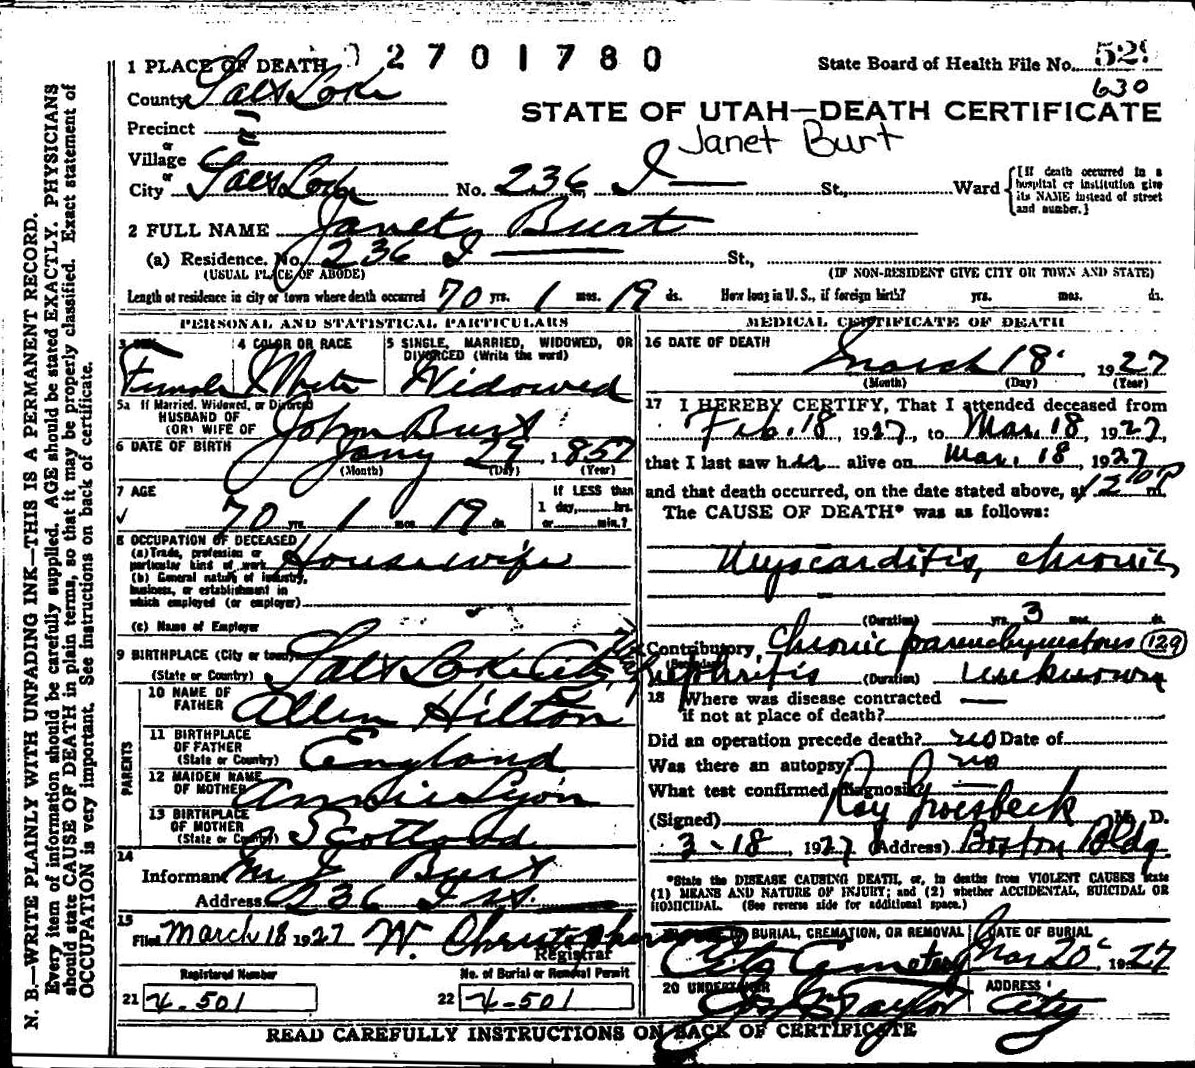 2701780
State Board of Health File No. 529
630
1 PLACE OF DEATH
County Salt Lake
STATE OF UTAH—DEATH CERTIFICATE
Precinct
or
Village
Janet Burt
or
City Salt Lake No. 236 I St., Ward
[If death occurred in a hospital or institution give its NAME instead of street and number.]
2 FULL NAME Janet Burt
(a) Residence. No. 236 I St.,
(USUAL PLACE OF ABODE) (IF NON-RESIDENT GIVE CITY OR TOWN AND STATE)
Length of residence in city or town where death occurred 70 yrs. 1 mos. 19 ds. How long in U. S., if foreign birth? yrs. mos. ds.
PERSONAL AND STATISTICAL PARTICULARS
3 SEX 4 COLOR OR RACE 5 SINGLE, MARRIED, WIDOWED, OR
DIVORCED (Write the word)
Female White Widowed
5a If Married, Widowed, or Divorced
HUSBAND OF
(OR) WIFE OF John Burt
6 DATE OF BIRTH Jany 29, 1857
(Month) (Day) (Year)
7 AGE If LESS than
1 day, hrs.
70 yrs. 1 mos. 19 ds. or min.?
8 OCCUPATION OF DECEASED
(a) Trade, profession or
particular kind of work Housewife
(b) General nature of industry,
business, or establishment in
which employed (or employer)
(c) Name of Employer
9 BIRTHPLACE (City or town) Salt Lake City,
(State or Country)
PARENTS
10 NAME OF
FATHER Allen Hilton
11 BIRTHPLACE
OF FATHER England
(State or Country)
12 MAIDEN NAME
OF MOTHER Annie Lyon
13 BIRTHPLACE
OF MOTHER Scotland
(State or Country)
14
Informant Burt
Address 236 I St.
15
Filed March 18 1927 W. Christopherson
Registrar
Registered Number No. of Burial or Removal Permit
21 4-501 22 4-501
MEDICAL CERTIFICATE OF DEATH
16 DATE OF DEATH
March 18, 1927
(Month) (Day) (Year)
17 I HEREBY CERTIFY, That I attended deceased from
Feb. 18, 1927, to Mar. 18, 1927,
that I last saw her alive on Mar. 18, 1927
and that death occurred, on the date stated above, at m.
The CAUSE OF DEATH* was as follows:
Myocarditis, chronic
(Duration) yrs. 3 mos. ds.
Contributory, Chronic parenchymatous 129
nephritis (Duration) unknown
18 Where was disease contracted
if not at place of death?
Did an operation precede death? no Date of
Was there an autopsy? no
What test confirmed diagnosis?
(Signed) Roy Groesbeck M. D.
3-18, 1927 (Address) Boston Bldg.
*State the DISEASE CAUSING DEATH, or, in deaths from VIOLENT CAUSES state
(1) MEANS AND NATURE OF INJURY; and (2) whether ACCIDENTAL, SUICIDAL OR
HOMICIDAL. (See reverse side for additional space.)
BURIAL, CREMATION, OR REMOVAL DATE OF BURIAL
City Cemetery Mar 20, 1927
20 UNDERTAKER ADDRESS
Taylor City
READ CAREFULLY INSTRUCTIONS ON BACK OF CERTIFICATE
N. B.—WRITE PLAINLY WITH UNFADING INK—THIS IS A PERMANENT RECORD.
Every item of information should be carefully supplied. AGE should be stated EXACTLY. PHYSICIANS
should state CAUSE OF DEATH in plain terms, so that it may be properly classified. Exact statement of
OCCUPATION is very important. See instructions on back of certificate.